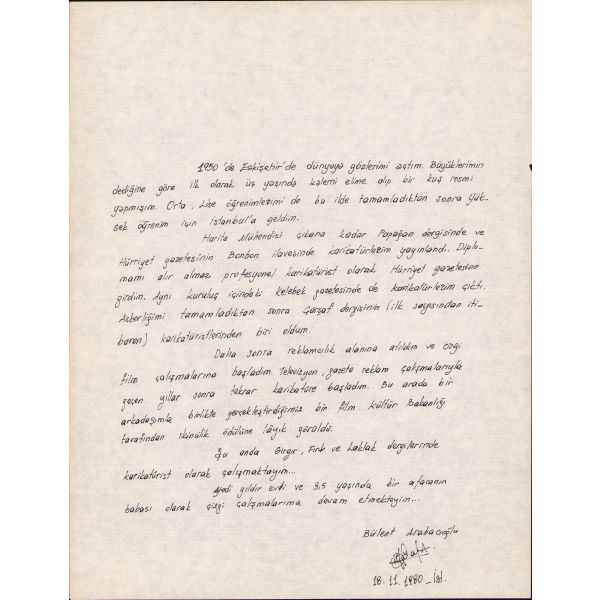 1950'de Eskişehir'de dünyaya gözlerimi açtım. Büyüklerimin
dediğine göre ilk olarak üç yaşında kalemi elime alıp bir kuş resmi
yapmışım. Orta, Lise öğrenimlerimi de bu ilde tamamladıktan sonra yük-
sek öğrenim için İstanbul'a geldim.
Harita Mühendisi çıkana kadar Papağan dergisinde ve
Hürriyet gazetesinin Bonbon ilavesinde karikatürlerim yayınlandı. Diplo-
mamı alır almaz profesyonel karikatürist olarak Hürriyet gazetesine
girdim. Aynı kuruluş içindeki Kelebek gazetesinde de karikatürlerim çıktı.
Askerliğimi tamamladıktan sonra Çarşaf dergisinin (ilk sayısından iti-
baren) karikatüristlerinden biri oldum.
Daha sonra reklamcılık alanına atıldım ve çizgi
film çalışmalarına başladım. Televizyon, gazete reklam çalışmalarıyla
geçen yıllar sonra tekrar karikatüre başladım. Bu arada bir
arkadaşımla birlikte gerçekleştirdiğimiz bir film. Kültür Bakanlığı
tarafından ikincilik ödülüne lâyık görüldü.
Şu anda Gırgır, Fırt ve Laklak dergilerinde
karikatürist olarak çalışmaktayım...
Yedi yıldır evli ve 3,5 yaşında bir afacanın
babası olarak çizgi çalışmalarıma devam etmekteyim...
Bülent Arabacıoğlu
18.11.1980 - İst.